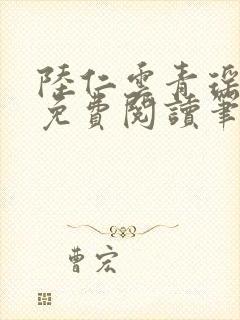 陸仁雲青瑤
免費閱讀筆
曹宏